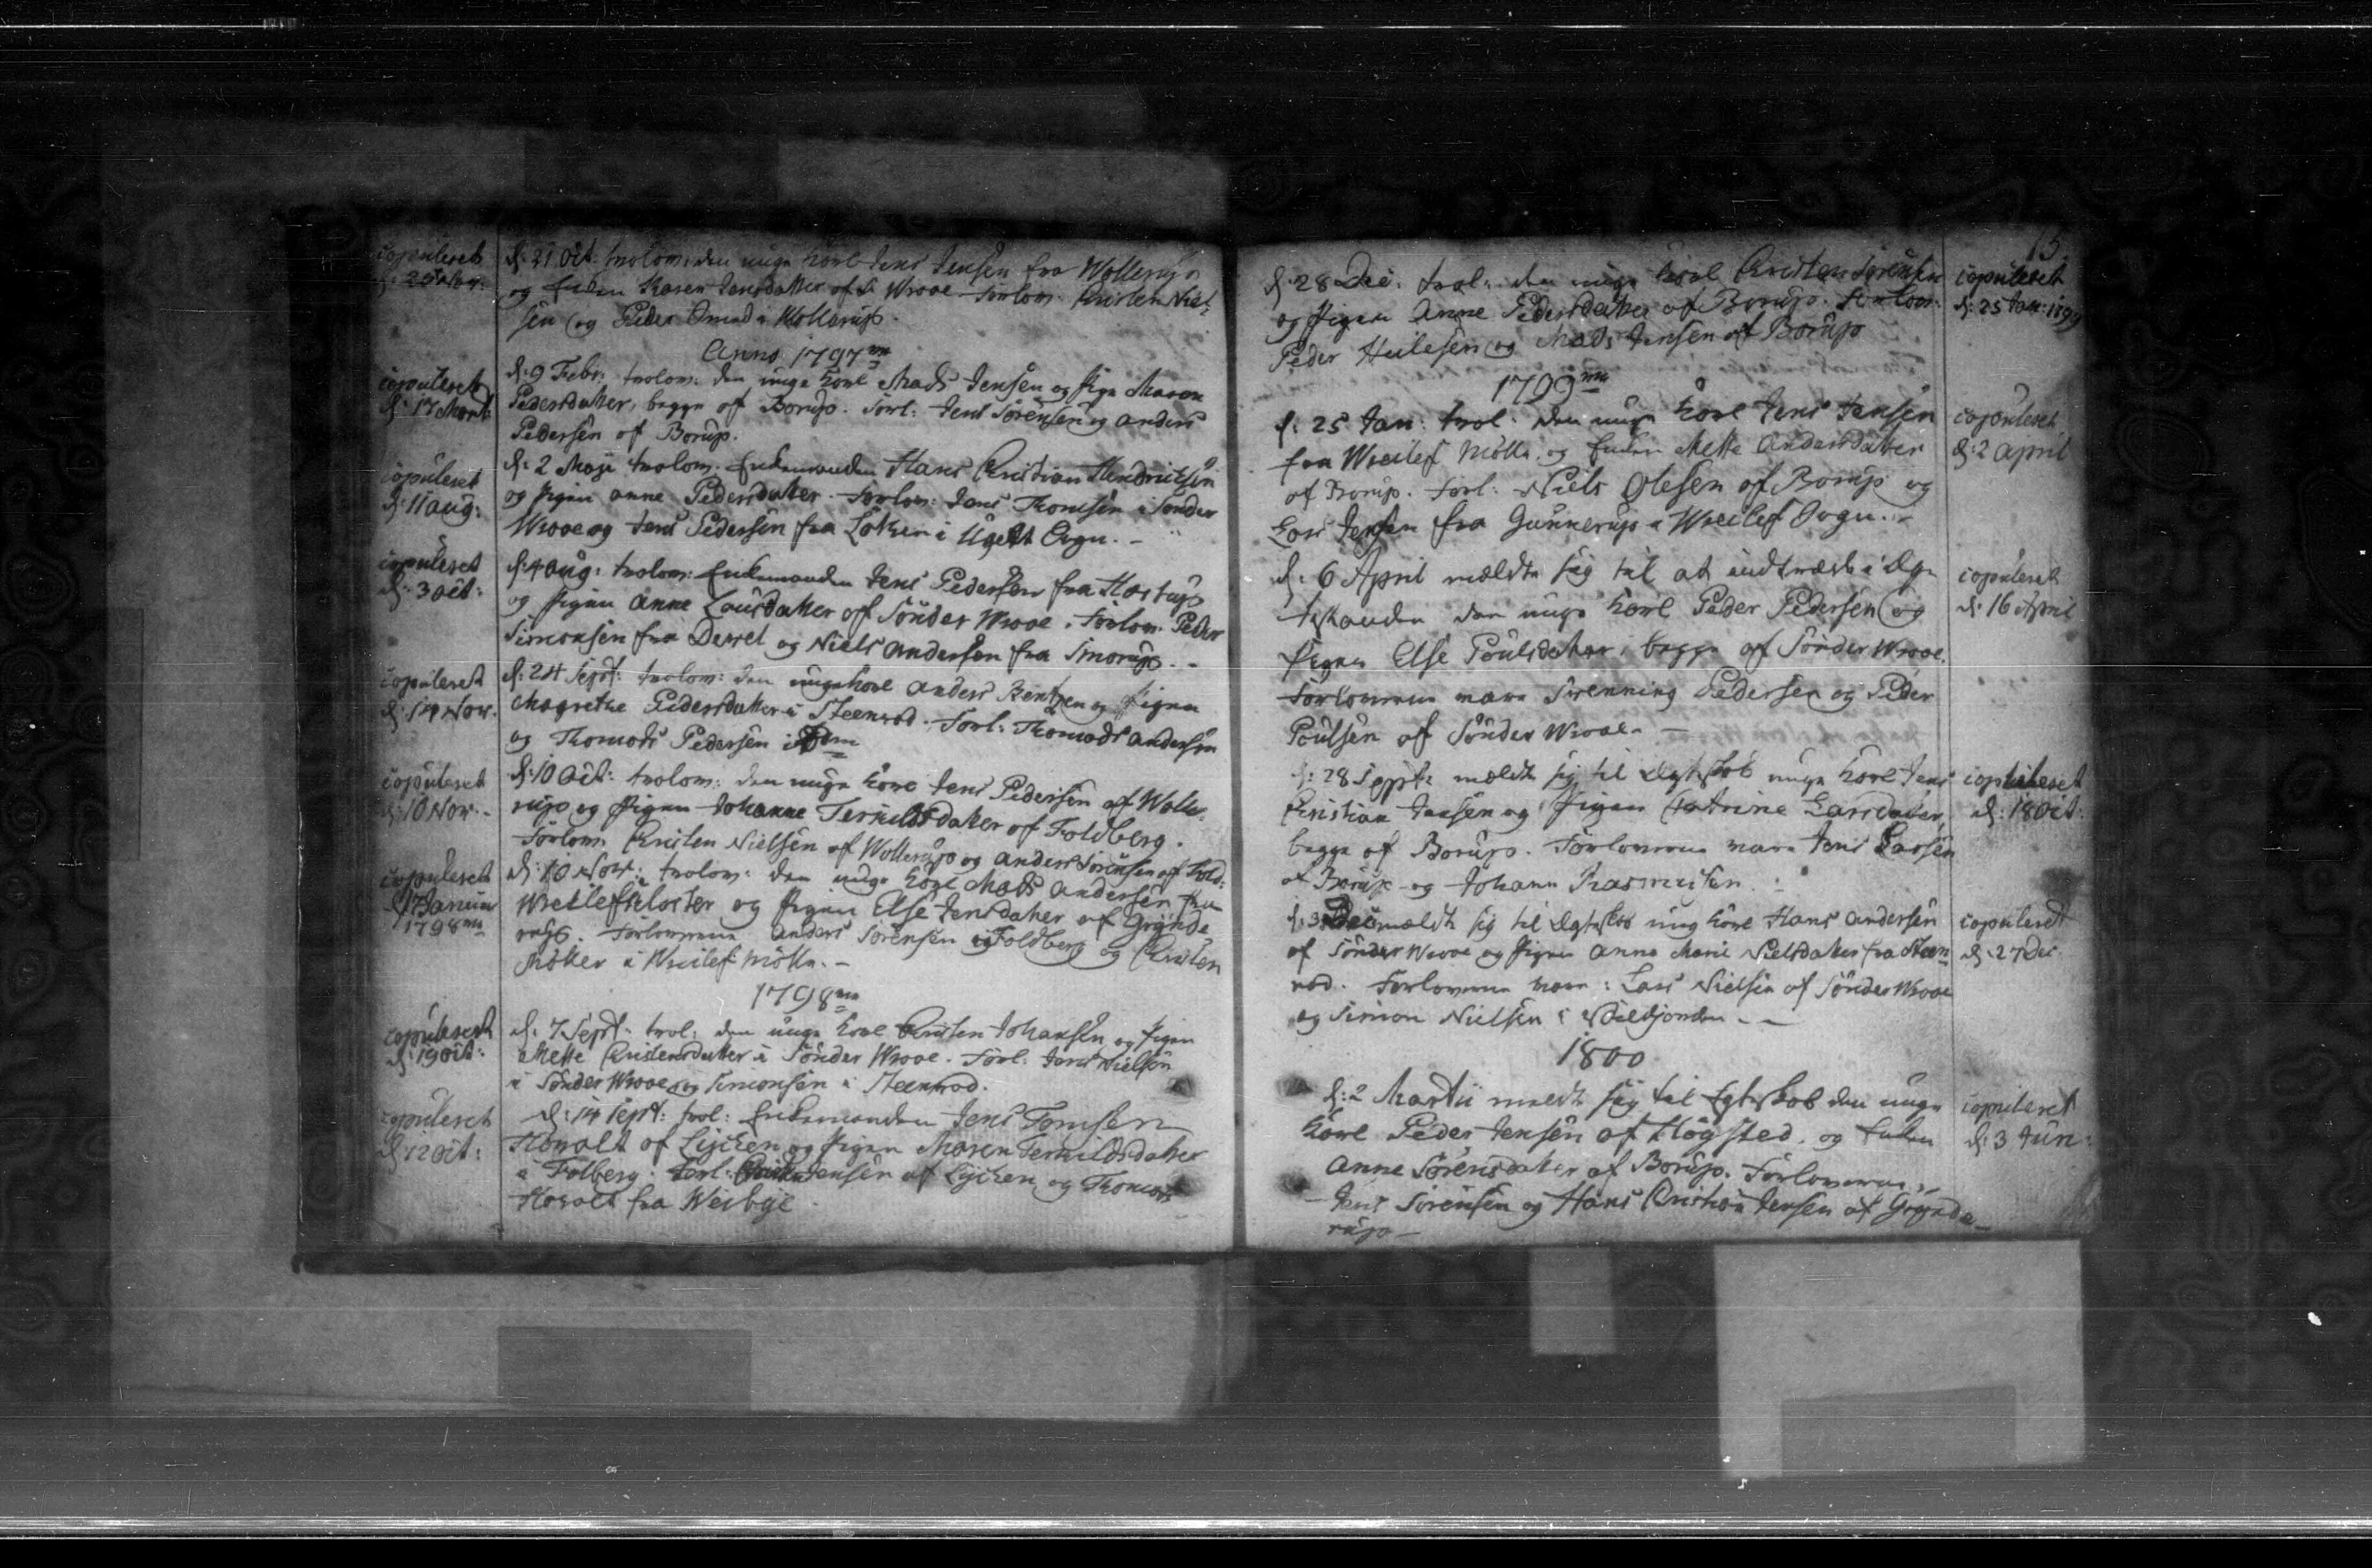 copuleret
d: 21 Oct: trolov: den unge Karl Jens Jensen fra Wollerup
og Enken Karen Jensdatter af S. Wrooe Forlov: Kristen Niel-
sen og Peder i Wollerup.
Anno 1797
copuleret
d: 17 Mart:
d: 9 Febr: trolov: den unge Karl Mads Jensen og Pige Maren
Pedersdatter, begge af Borup. Forl: Jens Sørensen og Anders
Pedersen af Borup.
copuleret
d: 11 Aug:
d: 2 Maji trolov: Enkemanden Hans Christian Hendrichsen
og Pigen Anne Pedersdatter. Forlov: Jens Thomsen i Sønder
Wrooe og Jens Pedersen fra Løkken i Ugelt Sogn. -
copuleret
d: 3 Oct:
d: 4 Aug: trolov: Enkemanden Jens Pedersen fra Hostrup
og Pigen Anne Lausdatter af Sønder Wrooe. Forlov. Peder
Simonsen fra og Niels Andersen fra Smorup. -
copuleret
d: 14 Nov.
d: 24 Sept: trolov: den unge Karl Anders Bentzen og Pigen
Magrethe Pedersdatter i Steenrod. Forl: Thomas Andersen
og Thomas Pedersen
copuleret
d: 10 Nov. -
d: 10 Oct: trolov: den unge Karl Jens Pedersen af Wolle-
rup og Pigen Johanne Terkildsdatter af Foldberg.
Forlov: Kristen Nielsen af Wollerup og Anders Sørensen af Fold:
copuleret
d: 17 Januar
1798
d: 10 Nov: trolov: den unge Karl Mads Andersen fra
Wreilefkloster og Pigen Else Jensdatter af Grynde-
rup. Forloverne Anders Sørensen i Foldberg og Kristen
Møller i Wreilef Mølle. -
1798
copuleret
d: 19 Oct:
d: 7 Sept: trol: den unge Karl Kristen Johansen og Pigen
Mette Kristensdatter i Sønder Wrooe. Forl: Jens Nielsen
i Sønder Wrooe og Simonsen i Steenrod.
copuleret
d: 12 Oct:
d: 14 Sept: trol: Enkemanden Jens Tomsen
Howalt af Lyken og Pigen Maren Terkildsdatter
i Folberg. Forl: Jensen af Lyken og Thomas
Howalt fra Weibye
15.
d: 28 Dec: trol: den unge Karl Kristen Sørensen
og Pigen Anne Pedersdatter af Borup. Forlov:
Peder og Mads Jensen af Borup
copuleret
d: 25 Jan: 1799
1799
d: 25 Jan: trol: den unge Karl Jens Jensen
fra Wreilef Mølle, og Enken Mette Andersdatter
af Borup. Forl: Niels Olesen af Borup og
Lars Jensen fra Gunnerup i Wreilef Sogn. -
copuleret
d: 2 April
d: 6 April meldte sig til at indtræde i Æg-
teskanden den unge Karl Peder Pedersen og
Pigen Else Poulsdatter, begge af Sønder Wrooe.
Forloverne vare Swenning Pedersen og Peder
Poulsen af Sønder Wrooe. -
copuleret
d: 16 April
d: 28 Sept: meldte sig til Ægteskab unge Karl Jens
Kristian Jensen og Pigen Catrine Larsdatter,
begge af Borup. Forloverne vare Jens Larsen
af Borup og Johann Rasmusen. -
copuleret
d: 18 Oct:
d: 3 Dec meldte sig til Ægteskab ung Karl Hans Andersen
af Sønder Wrooe og Pigen Anne Marie Nielsdatter fra Steen-
rod. Forloverne vare: Lars Nielsen af Sønder Wrooe
og Simon Nielsen i - -
copuleret
d: 27 Dec.
1800
d: 2 Martii meldte sig til Egteskab den unge
Karl Peder Jensen af Høgsted, og Enken
Anne Sørensdatter af Borup. Forloverne:
Jens Sørensen og Hans Kristian Jensen af Grynde-
rup -
copuleret
d: 3 Jun: